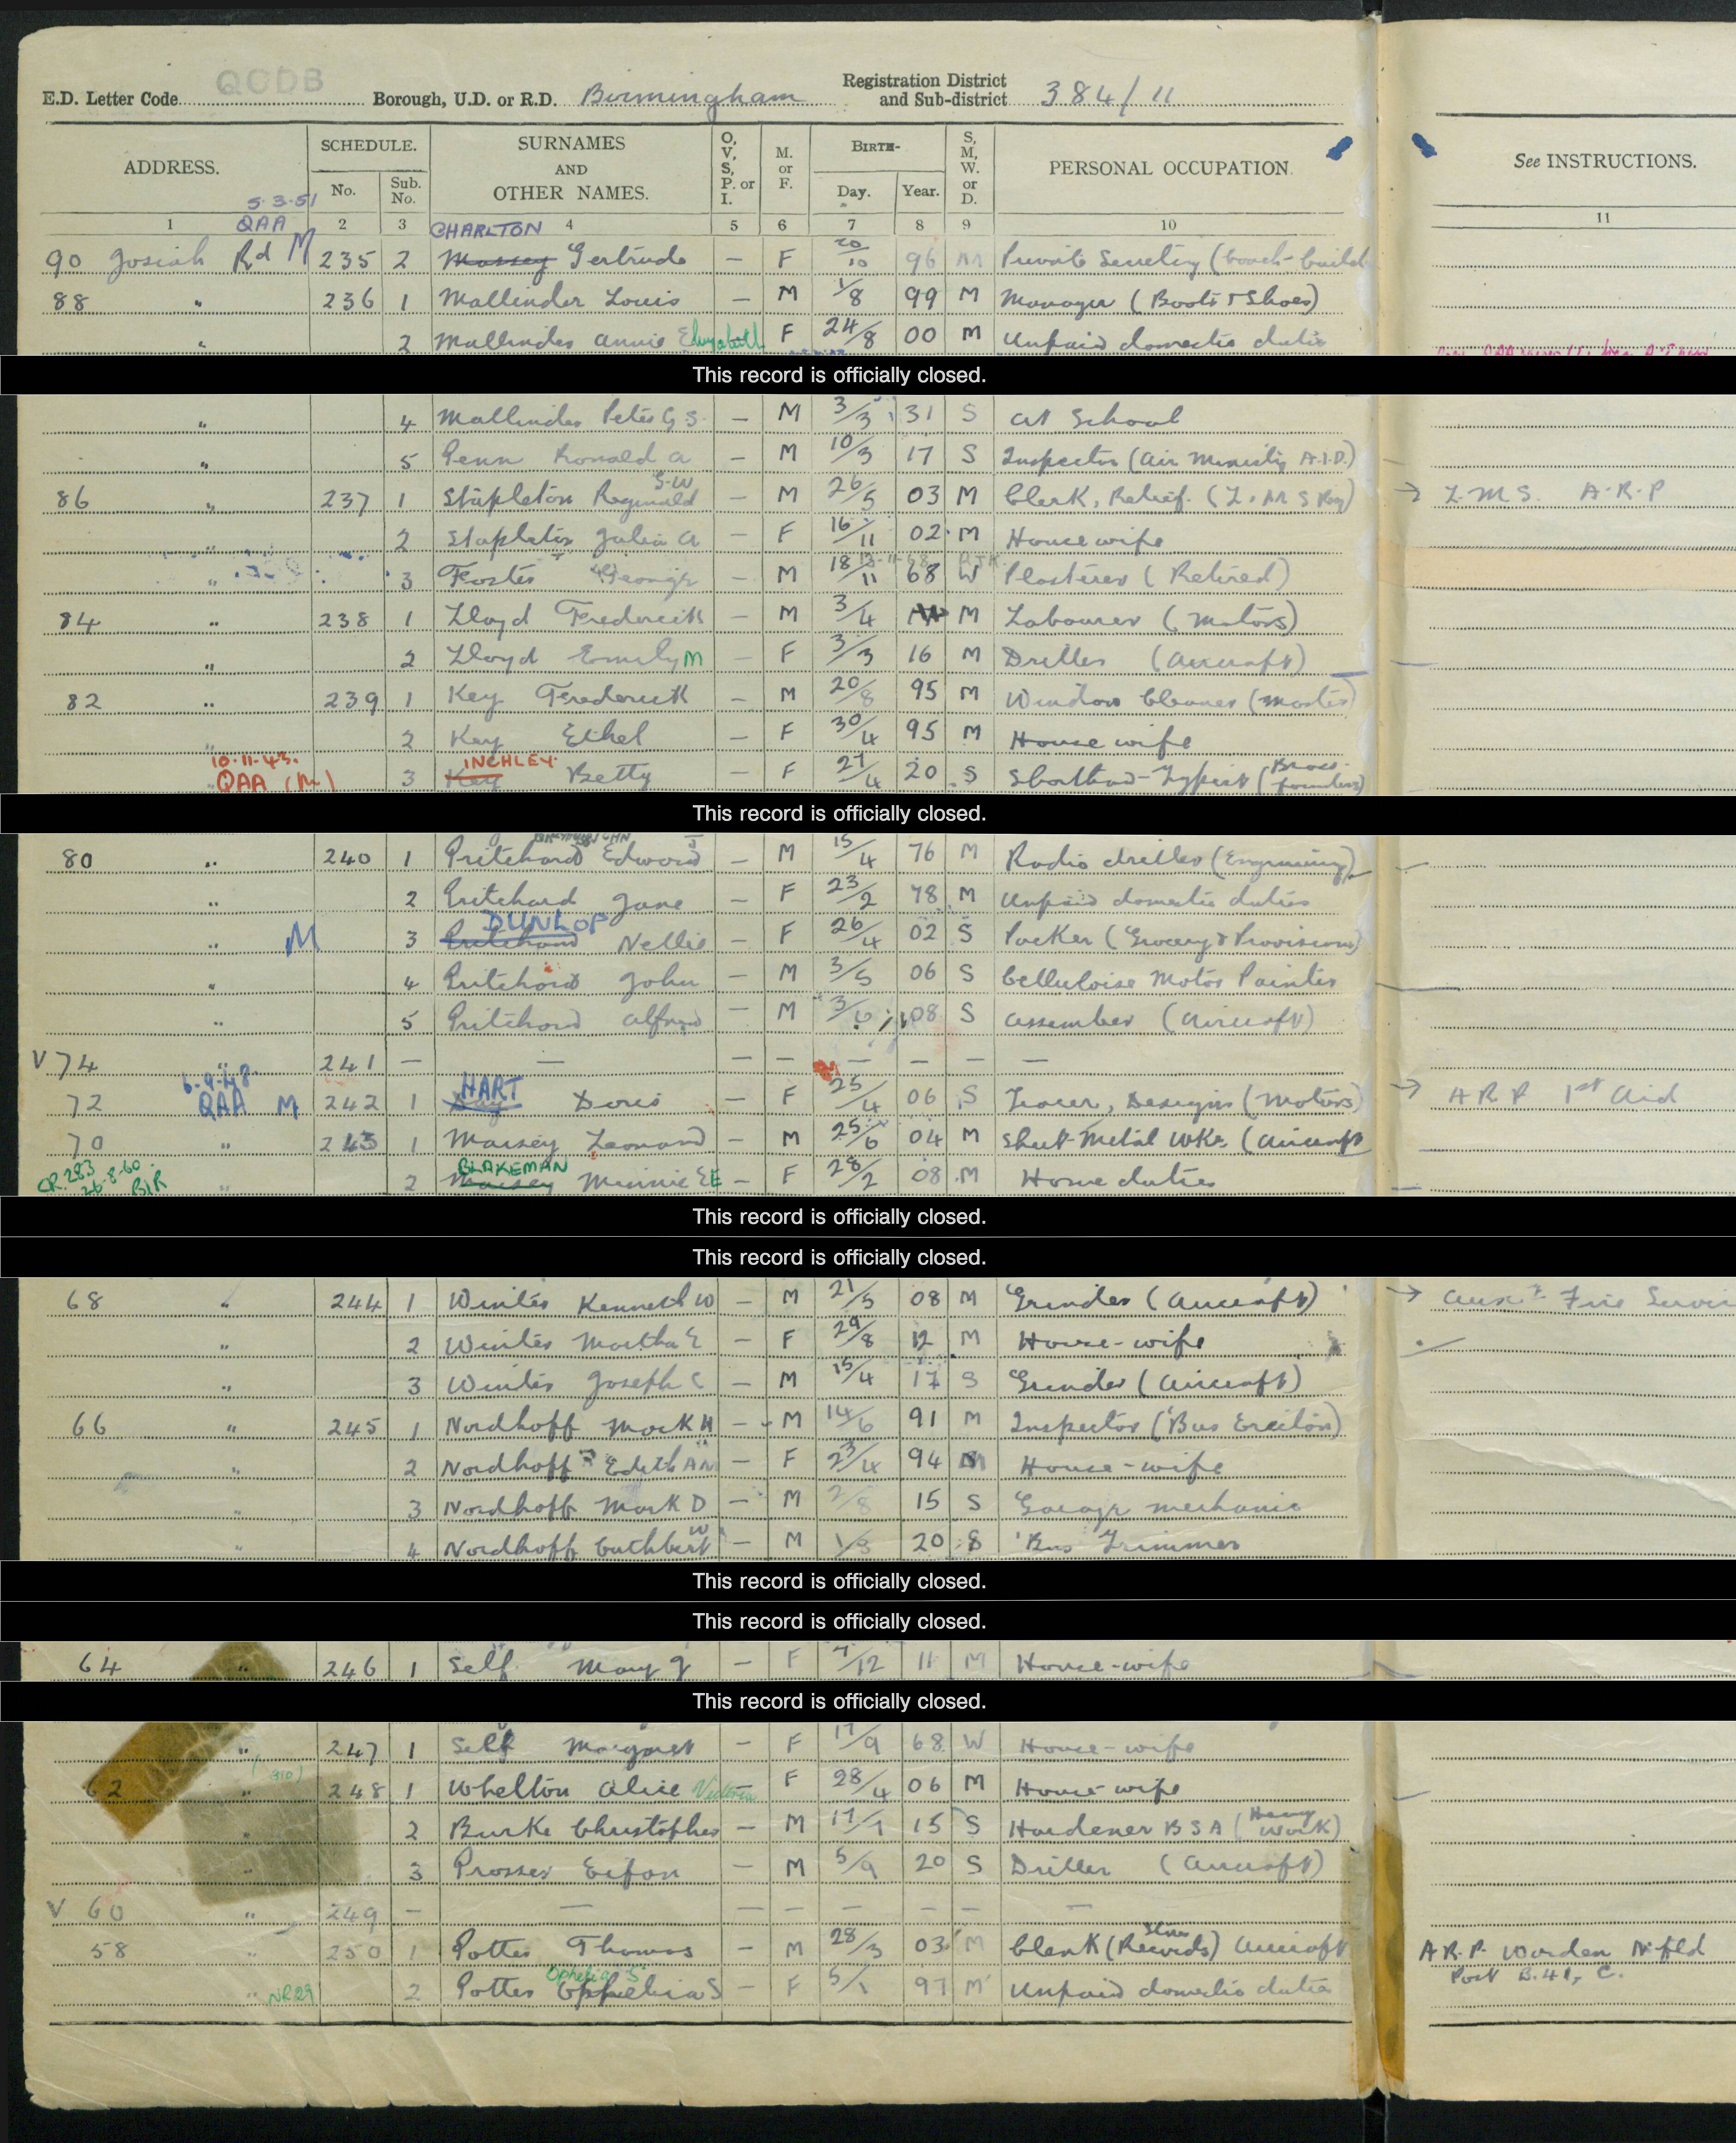 E.D. Letter Code QCDB Borough, U.D. or R.D. Birmingham Registration District and Sub-district 384/11
ADDRESS. SCHEDULE. No. Sub. No. SURNAMES AND OTHER NAMES. O, V, S, P. or I. M. or F. BIRTH- Day. Year. S, M, W. or D. PERSONAL OCCUPATION. See INSTRUCTIONS.
5·3·51
1 QAA 2 3 CHARLTON 4 5 6 7 8 9 10 11
90 Josiah Rd M 235 2 Massey Gertrude — F 20/10 96 M Private Secretary (Coach-build
88 " 236 1 Mallinder Louis — M 1/8 99 M Manager (Boots & Shoes)
" 2 Mallinder Annie Elizabeth F 24/8 00 M Unpaid domestic duties
This record is officially closed.
" 4 Mallinder Peter G S. — M 3/3 31 S At School
" 5 Penn Ronald A — M 10/3 17 S Inspector (Air Ministry A.I.D.)
86 " 237 1 Stapleton Reginald S.W — M 26/5 03 M Clerk, Relief. (L.M S Rly) → L.M.S. A.R.P
" 2 Stapleton Julia A — F 16/11 02 M Housewife
" 3 Foster George — M 18/11 68 W Plasterer (Retired)
84 " 238 1 Lloyd Frederick — M 3/4 M Labourer (Motors)
" 2 Lloyd Emily M — F 3/3 16 M Driller (Aircraft)
82 " 239 1 Key Frederick — M 20/8 95 M Window Cleaner (Master)
" 2 Key Ethel — F 30/4 95 M House wife
10·11·43. INCHLEY
" QAA (M) 3 Key Betty — F 27/4 20 S Shorthand-Typist (Brass founders)
This record is officially closed.
80 " 240 1 Pritchard Edward J — M 15/4 76 M Radio driller (Engineering)
" 2 Pritchard Jane — F 23/2 78 M Unpaid domestic duties
DUNLOP
" M 3 Pritchard Nellie — F 26/4 02 S Packer (Grocery & Provisions)
" 4 Pritchard John — M 3/5 06 S Celluloise Motor Painter
" 5 Pritchard Alfred — M 3/6 08 S Assember (Aircraft)
V 74 " 241 — — — — — — — —
6-9-48. HART
72 QAA M 242 1 Day Doris — F 25/4 06 S Tracer, Designs (Motors) → A R P 1st Aid
70 " 243 1 Maisey Leonard — M 25/6 04 M Sheet Metal Wkr. (Aircraft
CR.283 26·8·60 BIR BLAKEMAN
" 2 Maisey Minnie E E — F 28/2 08 M Home duties
This record is officially closed.
This record is officially closed.
68 " 244 1 Winter Kenneth W — M 21/5 08 M Grinder (Aircraft) → Aux. Fire Servi
" 2 Winter Martha E — F 29/8 12 M House-wife
" 3 Winter Joseph C — M 15/4 17 S Grinder (Aircraft)
66 " 245 1 Nordhoff Mark H — M 14/6 91 M Inspector (Bus Erection)
" 2 Nordhoff Edith A M — F 23/4 94 M House-wife
" 3 Nordhoff Mark D — M 2/8 15 S Garage mechanic
" 4 Nordhoff Cuthbert W — M 1/3 20 S 'Bus Trimmer
This record is officially closed.
This record is officially closed.
64 " 246 1 Self May J — F 4/12 11 M House-wife
This record is officially closed.
" 247 1 Self Margaret — F 17/9 68 W House-wife
62 " 248 1 Whelton Alice Victoria F 28/4 06 M House wife
" 2 Burke Christopher — M 17/7 15 S Hardener B S A (Heavy Work)
" 3 Prosser Eifon — M 5/9 20 S Driller (Aircraft)
V 60 " 249 — — — — — — — —
58 " 250 1 Potter Thomas — M 28/3 03 M Clerk (Stores Records) Aircraft A.R.P. Warden N-fld
Post B.41, C.
Ophelia S
" NR29 2 Potter Opphelia S — F 5/1 97 M Unpaid domestic duties